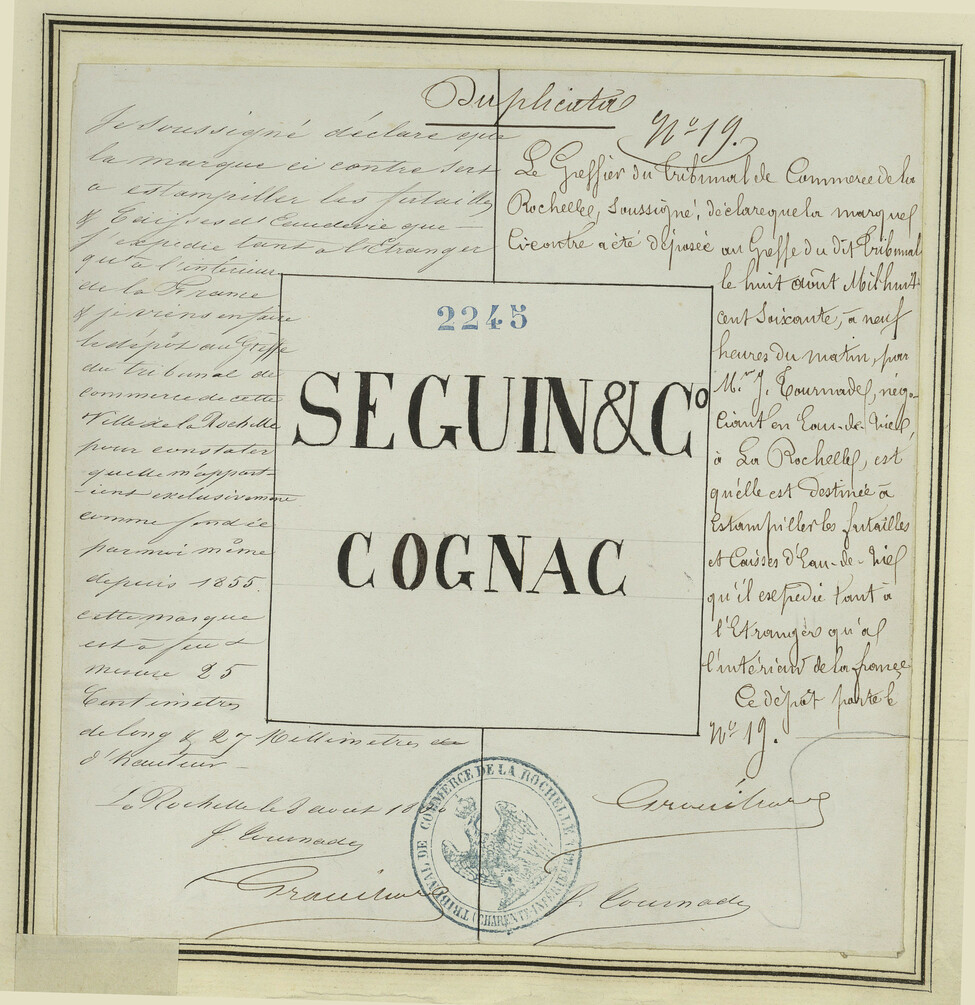 Duplicata
Je soussigné déclare que
la marque ci contre sert
a estampiller les futailles
& Caisses d'Eaudevie que
j'expedie tant à l'Etranger
qu'à l'intérieur
de la France
& je viens en faire
le dépôt au Greffe
du tribunal de
commerce de cette
Ville de la Rochelle
pour constater
quelle m'appart-
-ient exclusivement
comme fondée
par moi même
depuis 1855.
cette marque
est à feu &
mesure 25
Centimetres
de long & 27 Millimetres de
d'hauteur
La Rochelle le 8 aout 18
J. Tournade
N° 19.
Le Greffier du Tribunal de Commerce de la
Rochelle, Soussigné, déclare que la marque
Ci contre a été déposée au Greffe du dit Tribunal
le huit août Mil huit
cent Soixante, à neuf
heures du matin, par
Mr. J. Tournade, négo-
ciant en Eau-de-Vie,
à La Rochelle, est
qu'elle est Destinée à
Estampiller les futailles
et Caisses d'Eau-de-Vie
qu'il expédie tant à
l'Etranger qu'à
l'intérieur de la france
Ce dépôt porte le
N° 19.
J. Tournade
2245
SEGUIN & Co
COGNAC
TRIBUNAL DE COMMERCE DE LA ROCHELLE
(CHARENTE-INFÉRIEURE)